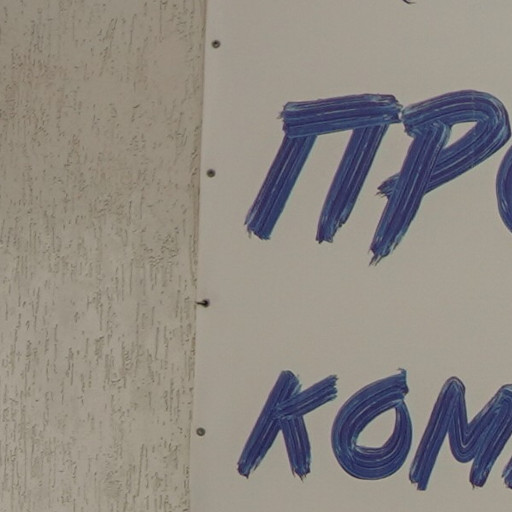 ПР
КОМ